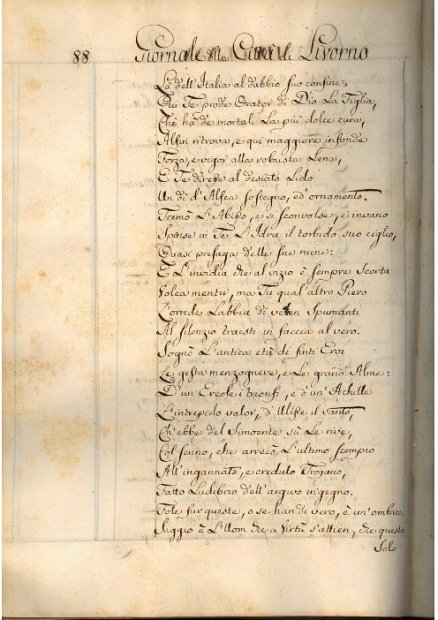 88 Giornale della Città di Livorno
Là dell'Italia al dubbio suo confine;
Qui Te prode Orator di Dio La Figlia,
Che ha de' mortali La più dolce cura,
Alfin ritrova, e qui maggiore infonde
Forza, e vigor alla robusta Lena,
E Te diresse al desiato Lido
Un dì d'Alfea sostegno, ed'ornamento.
Tremò L'Abisso, e si sconvolse, e invano
Sporse in Te L'Idra il torbido suo ciglio,
Quasi presaga delle sue ruine:
E L'invidia che al vizio è sempre Scorta
Volea mentir, ma Tu qual'altro Piero
L'orride Labbia di velen Spumanti
Al silenzio traesti in faccia al vero.
Sognò L'antica età di finti Eroi
Le gesta menzognere, e Le grand'Alme:
D'un Ercole i trionfi, e d'un'Achille
L'intrepido valor, d'Ulisse il vanto,
Ch'ebbe del Simoente sù Le rive,
Col senno, che arrecò L'ultimo scempio
All'ingannato, e credulo Trojano,
Fatto Ludibrio dell'argivo ingegno.
Fole fur queste, o se han di vero, è un'ombra.
Saggio è L'Uom che a Virtù s'attien, che questa
Solo